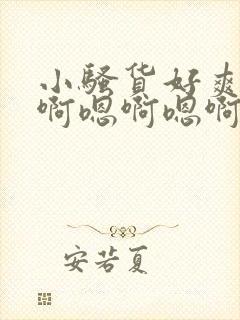 小骚货好爽
啊嗯啊嗯啊
安若夏